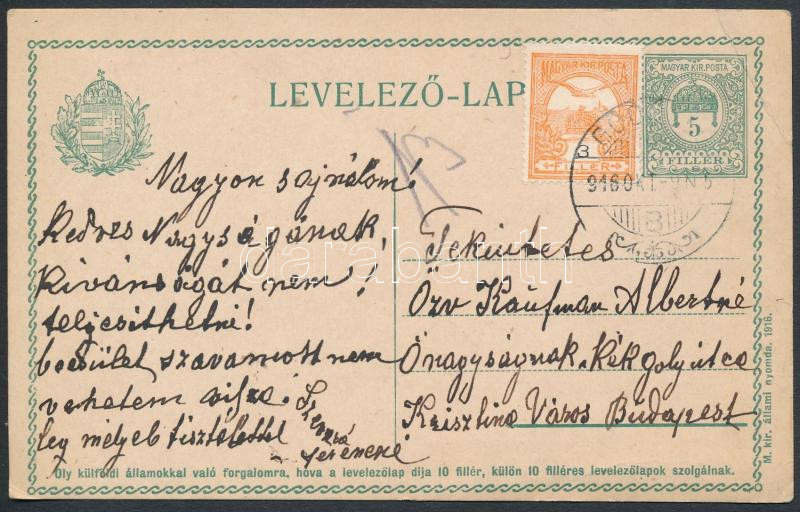 LEVELEZŐ-LAP
MAGYAR KIR. POSTA
3
FILLÉR
MAGYAR KIR. POSTA
5
FILLÉR
916 OKT -9 N 3
8
Nagyon sajnálom!
Kedves Nagyságának,
Kivánságát nem!
teljesithetné!
becsület szavamott nem
vehetem
leg mélyeb tisztelettel
Ferencné
Tekintetes
Özv Kaufman Albertné
Önagyságnak. Kékgolyutca
Krisztina Város Budapest
Oly külföldi államokkal való forgalomra, hova a levelezőlap díja 10 fillér, külön 10 filléres levelezőlapok szolgálnak.
M. kir. állami nyomda. 1916.
darabanth